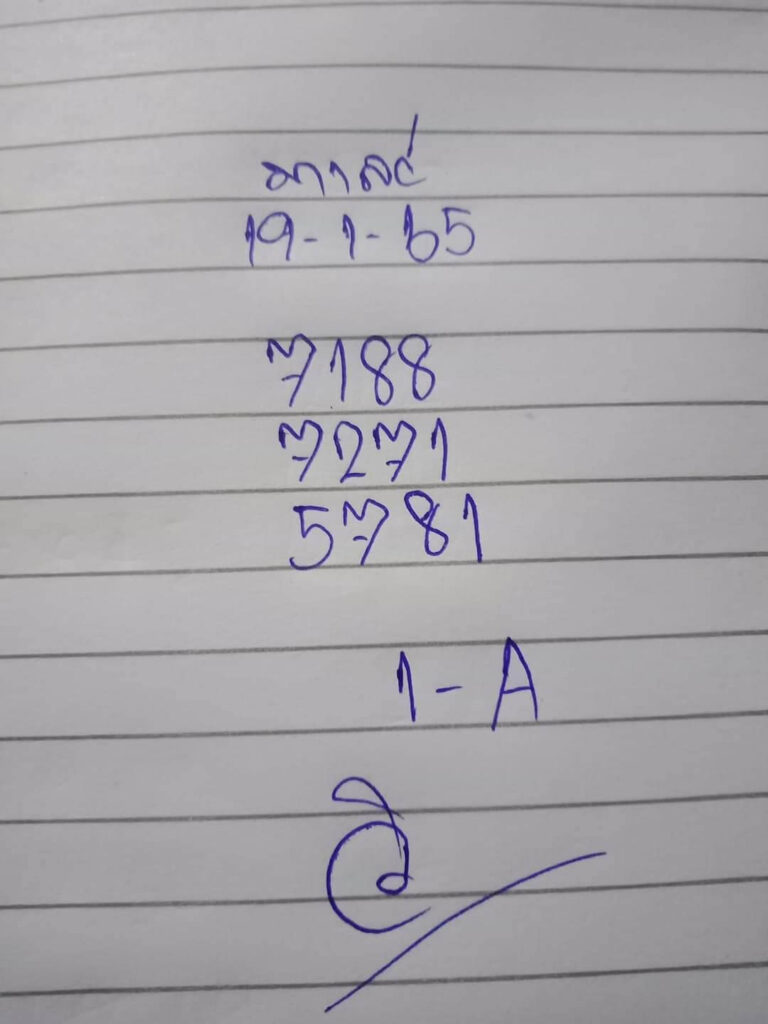 มาเลย์
19-1-65
7188
7271
5781
1-A